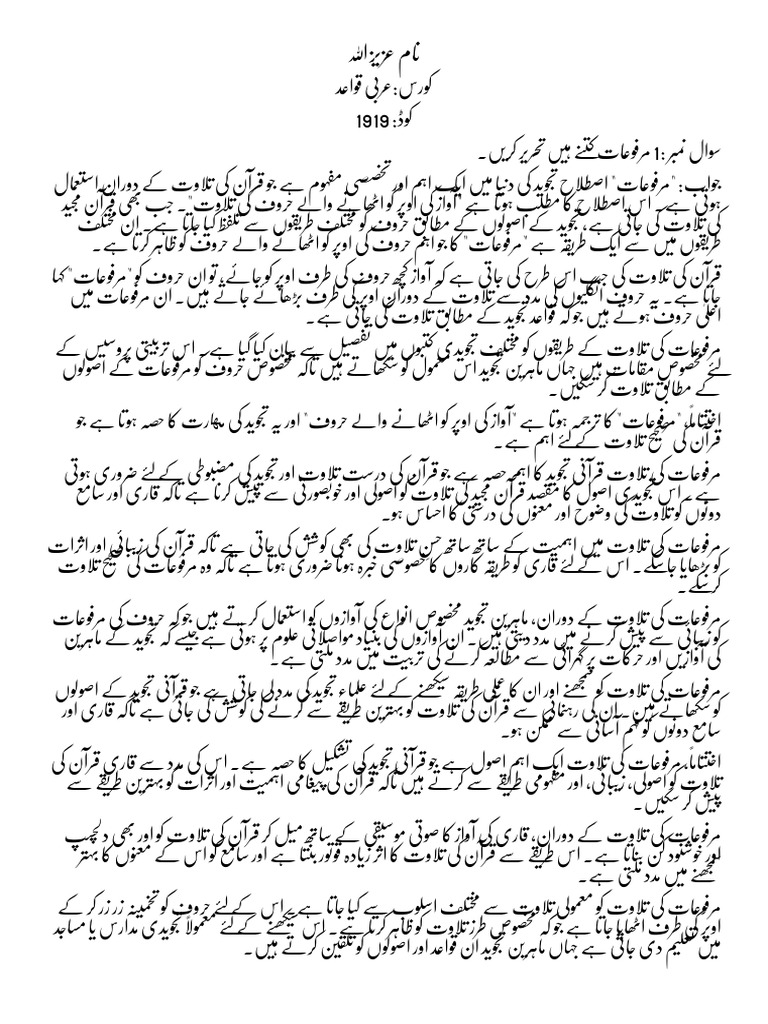 نام عزیز اللہ
کورس: عربی قواعد
کوڈ: 1919
سوال نمبر :1 مرفوعات کتنے ہیں تحریر کریں۔
جواب: "مرفوعات" اصطلاح تجوید کی دنیا میں ایک اہم اور تخصصی مفہوم ہے جو قرآن کی تلاوت کے دوران استعمال
ہوتی ہے۔ اس اصطلاح کا مطلب ہوتا ہے "آواز کی اوپر کو اٹھانے والے حروف کی تلاوت"۔ جب بھی قرآن مجید
کی تلاوت کی جاتی ہے، تجوید کے اصولوں کے مطابق حروف کو مختلف طریقوں سے تلفظ کیا جاتا ہے۔ ان مختلف
طریقوں میں سے ایک طریقہ ہے "مرفوعات" کا جو اہم حروف کی اوپر کو اٹھانے والے حروف کو ظاہر کرتا ہے۔
قرآن کی تلاوت کی جب اس طرح کی جاتی ہے کہ آواز کچھ حروف کی طرف اوپر کو جائے، تو ان حروف کو "مرفوعات" کہا
جاتا ہے۔ یہ حروف انگلیوں کی مدد سے تلاوت کے دوران اوپر کی طرف بڑھائے جاتے ہیں۔ ان مرفوعات میں
اعلیٰ حروف ہوتے ہیں جو کہ قواعد تجوید کے مطابق تلاوت کی جاتی ہے۔
مرفوعات کی تلاوت کے طریقوں کو مختلف تجویدی کتبوں میں تفصیل سے بیان کیا گیا ہے۔ اس تربیتی پروسیس کے
لئے مخصوص مقامات ہیں جہاں ماہرین تجوید اس عمول کو سکھاتے ہیں تاکہ مخصوص حروف کو مرفوعات کے اصولوں
کے مطابق تلاوت کر سکیں۔
اختتاماً، "مرفوعات" کا ترجمہ ہوتا ہے "آواز کی اوپر کو اٹھانے والے حروف" اور یہ تجوید کی مہارت کا حصہ ہوتا ہے جو
قرآن کی صحیح تلاوت کے لئے اہم ہے۔
مرفوعات کی تلاوت قرآنی تجوید کا اہم حصہ ہے جو قرآن کی درست تلاوت اور تجوید کی مضبوطی کے لئے ضروری ہوتی
ہے۔ اس تجویدی اصول کا مقصد قرآن مجید کی تلاوت کو اصولی اور خوبصورتی سے پیش کرنا ہے تاکہ قاری اور سامع
دونوں کو تلاوت کی وضوح اور معنوں کی درستی کا احساس ہو۔
مرفوعات کی تلاوت میں اہمیت کے ساتھ ساتھ حسن تلاوت کی بھی کوشش کی جاتی ہے تاکہ قرآن کی زیبائی اور اثرات
کو بڑھایا جاسکے۔ اس کے لئے قاری کو طریقہ کاروں کا خصوصی خبرہ ہونا ضروری ہوتا ہے تاکہ وہ مرفوعات کی صحیح تلاوت
کرسکے۔
مرفوعات کی تلاوت کے دوران، ماہرین تجوید مخصوص انواع کی آوازوں کو استعمال کرتے ہیں جو کہ حروف کی مرفوعات
کو زیبائی سے پیش کرنے میں مدد دیتی ہیں۔ ان آوازوں کی بنیاد مواصلاتی علوم پر ہوتی ہے جیسے کہ تجوید کے ماہرین
کی آوازیں اور حرکات پر گہرائی سے مطالعہ کرنے کی تربیت میں مدد ملتی ہے۔
مرفوعات کی تلاوت کو سمجھنے اور ان کا عملی طریقہ سیکھنے کے لئے علماء تجوید کی مدد لی جاتی ہے جو قرآنی تجوید کے اصولوں
کو سکھاتے ہیں۔ ان کی رہنمائی سے قرآن کی تلاوت کو بہترین طریقے سے کرنے کی کوشش کی جاتی ہے تاکہ قاری اور
سامع دونوں کو فہم آسانی سے ممکن ہو۔
اختتاماً، مرفوعات کی تلاوت ایک اہم اصول ہے جو قرآنی تجوید کی تشکیل کا حصہ ہے۔ اس کی مدد سے قاری قرآن کی
تلاوت کو اصولی، زیبائی، اور مفہومی طریقے سے کرتے ہیں تاکہ قرآن کی پیغامی اہمیت اور اثرات کو بہترین طریقے سے
پیش کر سکیں۔
مرفوعات کی تلاوت کے دوران، قاری کی آواز کا صوتی موسیقی کے ساتھ میل کر قرآن کی تلاوت کو اور بھی دلچسپ
اور خوشنود کن بناتا ہے۔ اس طریقے سے قرآن کی تلاوت کا اثر زیادہ قوتور بنتا ہے اور سامع کو اس کے معنوں کا بہتر
سمجھنے میں مدد ملتی ہے۔
مرفوعات کی تلاوت کو معمولی تلاوت سے مختلف اسلوب سے کیا جاتا ہے۔ اس کے لئے حروف کو تخمینہ زر زر کر کے
اوپر کی طرف اٹھایا جاتا ہے جو کہ مخصوص طرز تلاوت کو ظاہر کرتا ہے۔ اس سیکھنے کے لئے معمولاً تجویدی مدارس یا مساجد
میں تعلیم دی جاتی ہے جہاں ماہرین تجوید ان قواعد اور اصولوں کو تلقین کرتے ہیں۔